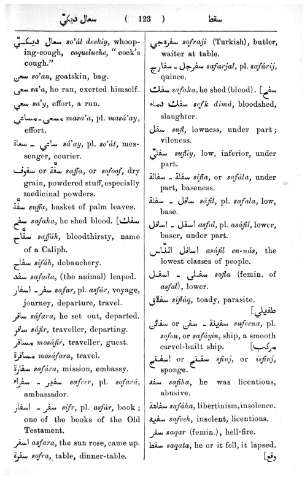 سعال ديكيّ ( 123 ) سفـط
سعال ديكيّ so'ál deekiy, whoop-
ing-cough, coqueluche, "cock's
cough."
سعن so'an, goatskin, bag.
سعى sa'a, he ran, exerted himself.
سعي sa'y, effort, a run.
مسعى - مساعي masa'a, pl. masá'ay,
effort.
ساعي - سعاة sá'ay, pl. so'át, mes-
senger, courier.
or saffa, or sofoof, dry
grain, powdered stuff, especially
medicinal powders.
suffa, basket of palm leaves.
سفح safaha, he shed blood. [سفك]
سفّاح saffáh, bloodthirsty, name
of a Caliph.
سفاح sifáh, debauchery.
سفد safada, (the animal) leaped.
سفر - اسفار safar, pl. asfár, voyage,
journey, departure, travel.
سافر sáfara, he set out, departed.
سافر sáfir, traveller, departing.
مسافر mosáfir, traveller, guest.
مسافرة mosáfara, travel.
سفارة safára, mission, embassy.
سفير - سفراء safeer, pl. sofará,
ambassador.
سفر - اسفار sifr, pl. asfár, book;
one of the books of the Old
Testament.
اسفر asfara, the sun rose, came up.
سفرة sofra, table, dinner-table.
سفرجي sofraji (Turkish), butler,
waiter at table.
سفرجل - سفارج safarjal, pl. safárij,
quince.
سفك safaka, he shed (blood).
سفك دماء safk dimá, bloodshed,
slaughter.
سفل sufl, lowness, under part;
vileness.
سفلي sufliy, low, inferior, under
part.
سفلة - سفالة sifla, or sofála, under
part, baseness.
سافل - سفلة sáfil, pl. safala, low,
base.
اسفل - اسافل asfal, pl. asáfil, lower,
baser, under part.
اسافل الناس asáfil en-nás, the
lowest classes of people.
سفلى - اسفل sofla (femin. of
asfal), lower.
سفلاق sifláq, toady, parasite.
[طفيلي]
سفينة - سفن or safeena, pl.
sofon, or safáyin, ship, a smooth
carved-built ship. [مركب]
سفنج or اسفنج sifinj, or isfinj,
sponge.
سفه safiha, he was licentious,
abusive.
سفاهة safáha, libertinism, insolence.
سفيه safeeh, insolent, licentious.
سقر saqar (femin.), hell-fire.
سقط saqata, he or it fell, it lapsed.
[وقع]